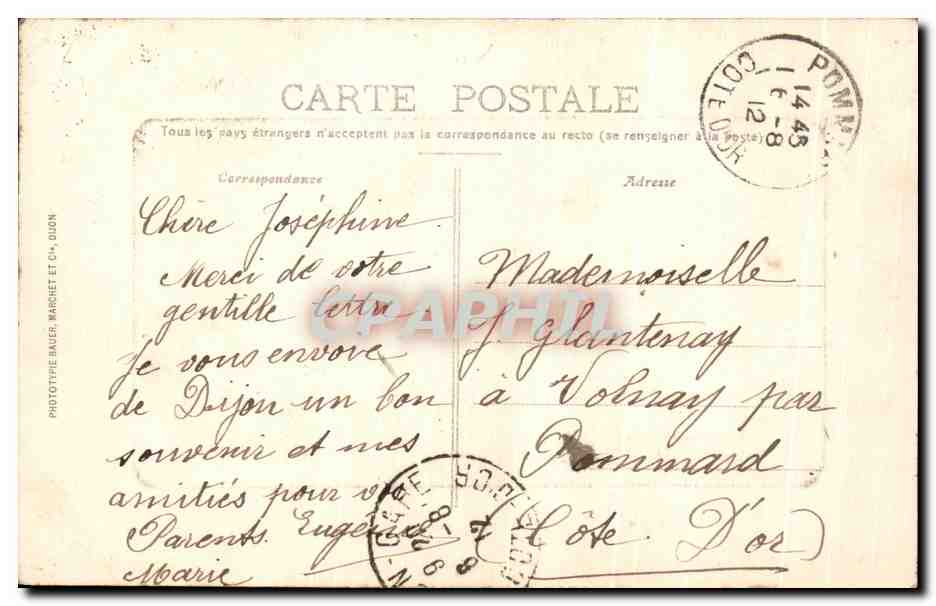 CARTE POSTALE
Tous les pays étrangers n'acceptent pas la correspondance au recto (se renseigner à la Poste)
Correspondance
Adresse
PHOTOTYPIE BAUER, MARCHET ET Cie, DIJON
Chère Joséphine
Merci de votre
gentille lettre.
Je vous envove
de Dijon un bon
souvenir et mes
amitiés pour vos
Parents. Eugénie
Marie
Mademoiselle
J. Glantenay
à Volnay par
Pommard
(Côte D'or)
POMM
COTE D'OR
14 45
6 - 8
12
GARE
COTE D'OR
CPAPHIL